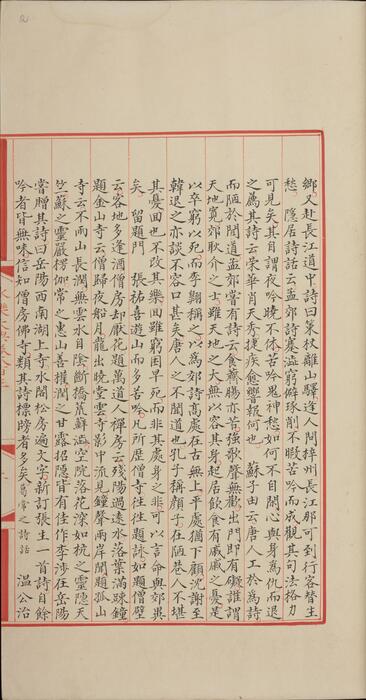 鄉又赴長江道中詩曰策杖離山驛逢人問梓州長江那可到行客替生
愁 隱居詩話云孟郊詩蹇澁窮僻琢削不暇苦吟而成觀其句法格力
可見矣其自謂夜吟曉不休苦吟鬼神愁如何不自閑心與身為仇而退
之薦其詩云榮華肖天秀捷疾愈響報何也 蘇子由云唐人工於為詩
而陋於聞道孟郊嘗有詩云食薺腸亦苦強歌聲無歡出門即有礙誰謂
天地寬郊耿介之士雖天地之大無以容其身起居飲食有戚戚之憂是
以卒窮以死而李翱稱之以為郊詩高處在古無上平處猶下顧沈謝至
韓退之亦談不容口甚矣唐人之不聞道也孔子稱顏子在陋巷人不堪
其憂回也不改其樂回雖窮困早死而非其處身之非可以言命與郊異
矣 留題門 張祜喜遊山而多苦吟凡所歷僧寺往往題詠如題僧壁
云客地多逢酒僧房却厭花題萬道人禪房云殘陽過遠水落葉滿踈鐘
題金山寺云僧歸夜船月龍出曉堂雲寺影中流見鐘聲兩岸聞題孤山
寺云不雨山長潤無雲水自陰斷橋荒蘚澁空院落花深如杭之靈隱天
竺蘇之靈巖楞伽常之惠山善權潤之甘露招隱皆有佳作李涉在岳陽
嘗贈其詩曰岳陽西南湖上寺水閣松房遍文字新訂張生一首詩自餘
吟者皆無味信知僧房佛寺類其詩標牓者多矣 詩話 温公治